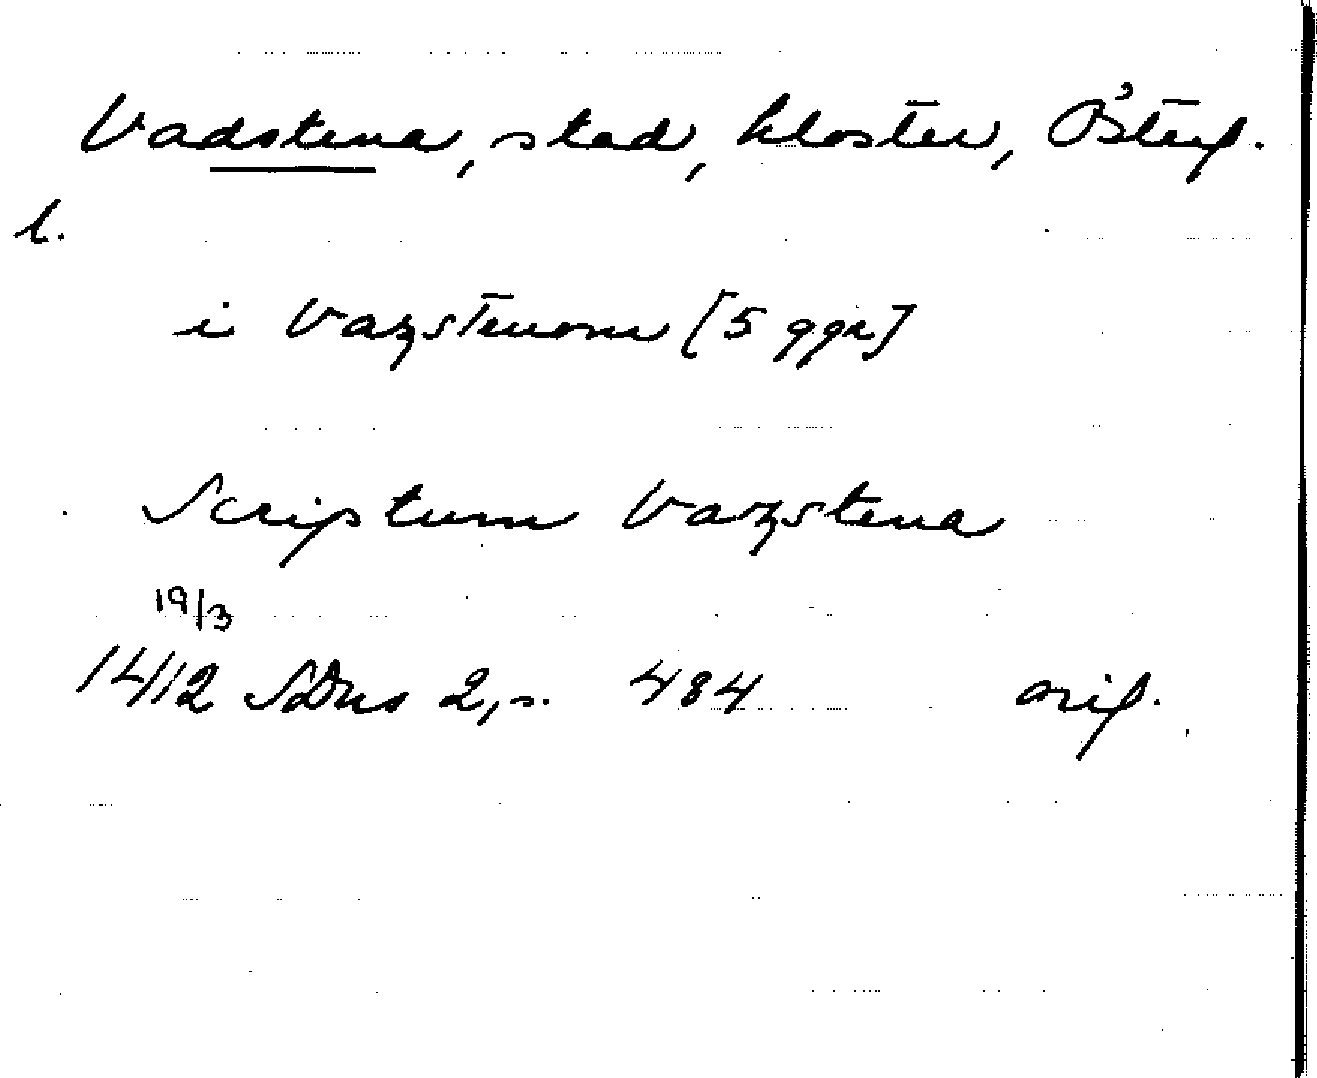 Vadstena, stad, kloster, Österg.
l.
i Vazstenom [5 ggr]
Scriptum Vazstena
19/3
1412 SDns 2, s. 484 orig.